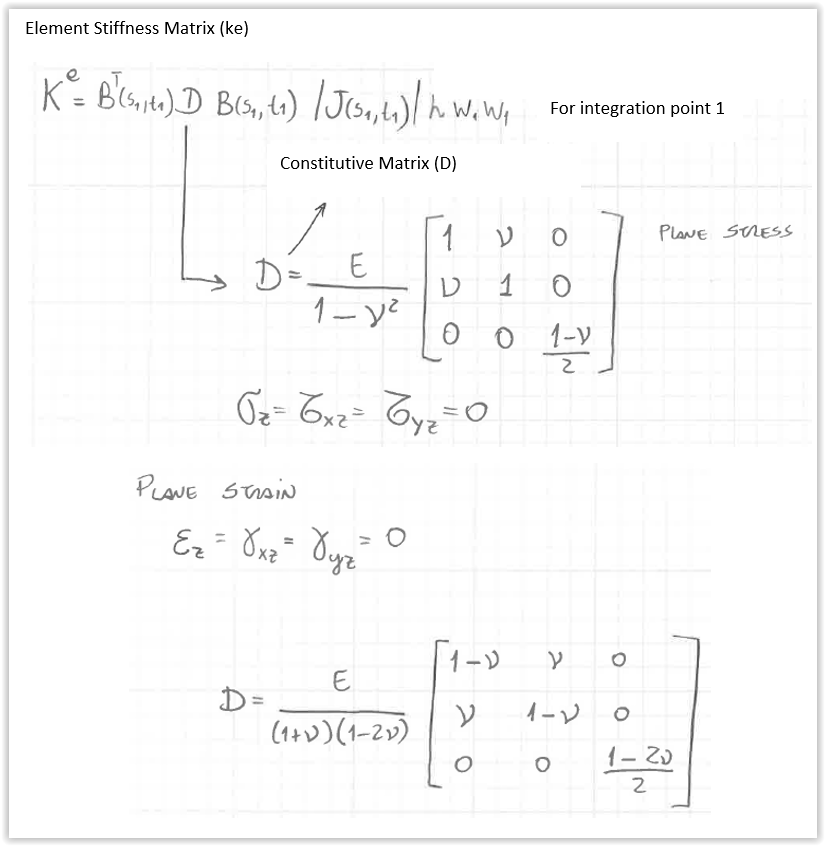 Element Stiffness Matrix (ke)
K^e = B^T(s₁,t₁) D B(s₁,t₁) |J(s₁,t₁)| h W₁ W₁ For integration point 1
Constitutive Matrix (D)
D = E / (1 - ν²) [1 ν 0; ν 1 0; 0 0 (1-ν)/2] PLANE STRESS
σ_z = τ_xz = τ_yz = 0
PLANE STRAIN
ε_z = γ_xz = γ_yz = 0
D = E / ((1+ν)(1-2ν)) [1-ν ν 0; ν 1-ν 0; 0 0 (1-2ν)/2]